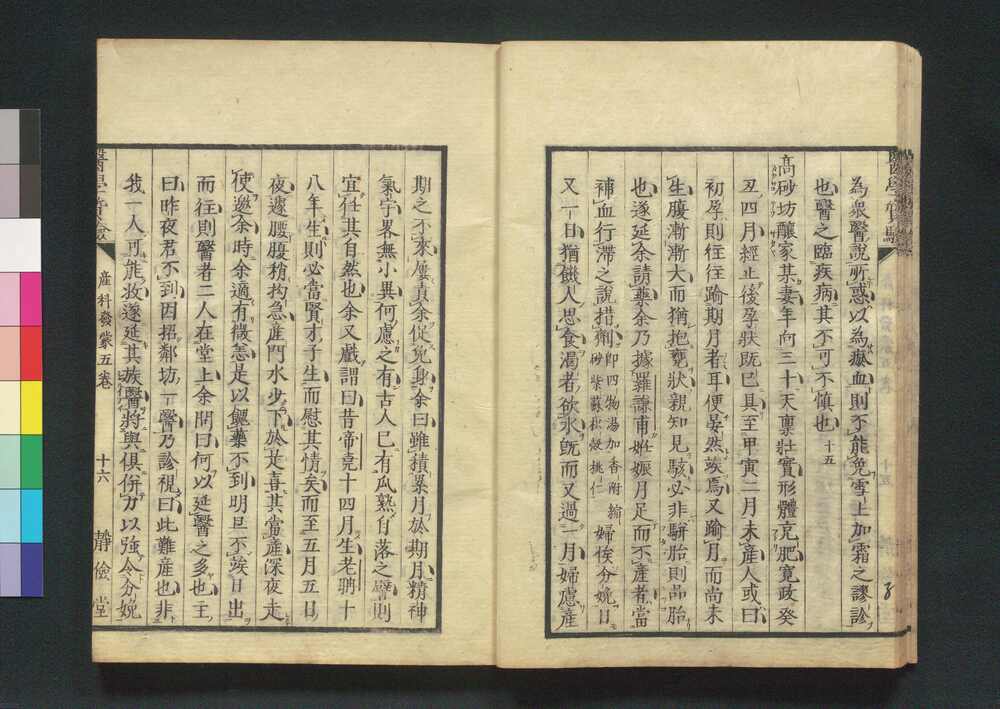 為衆醫説所惑以為瘀血則不能免雪上加霜之謬診
也醫之臨疾病其不可不愼也 十五
高砂坊釀家某妻年向三十天稟壯實形體充肥寛政癸
丑四月經止後孕狀既已具至甲寅二月未産人或曰
初孕則往往踰期月者耳便晏然竢焉又踰月而尚未
生腹漸漸大而猶抱甕狀親知見駭必非駢胎則品胎
也遂延余請藥余乃據羅謙甫姙娠月足而不産者當
補血行滯之説措劑即四物湯加香附縮砂紫蘇枳殼桃仁婦俟分娩日
又一日猶饑人思食渴者欲水既而又過一月婦慮産
期之不來屢責余促免身余曰雖積累月於期月精神
氣宇畧無小異何慮之有古人已有瓜熟自落之譬則
宜任其自然也余又戲謂曰昔帝堯十四月生老聃十
八年生則必當賢才子生而慰其情矣而至五月五日
夜遽腰腹稍拘急産門水少下於是喜其當産深夜走
使邀余時余適有微恙是以餽藥不到明旦不竢日出
而往則醫者二人在堂上余問曰何以延醫之多也主
曰昨夜君不到因招鄰坊一醫乃診視曰此難産也非
我一人可能救遂延其族醫將與俱併力以強令分娩
産科發蒙五卷
十六
靜儉堂